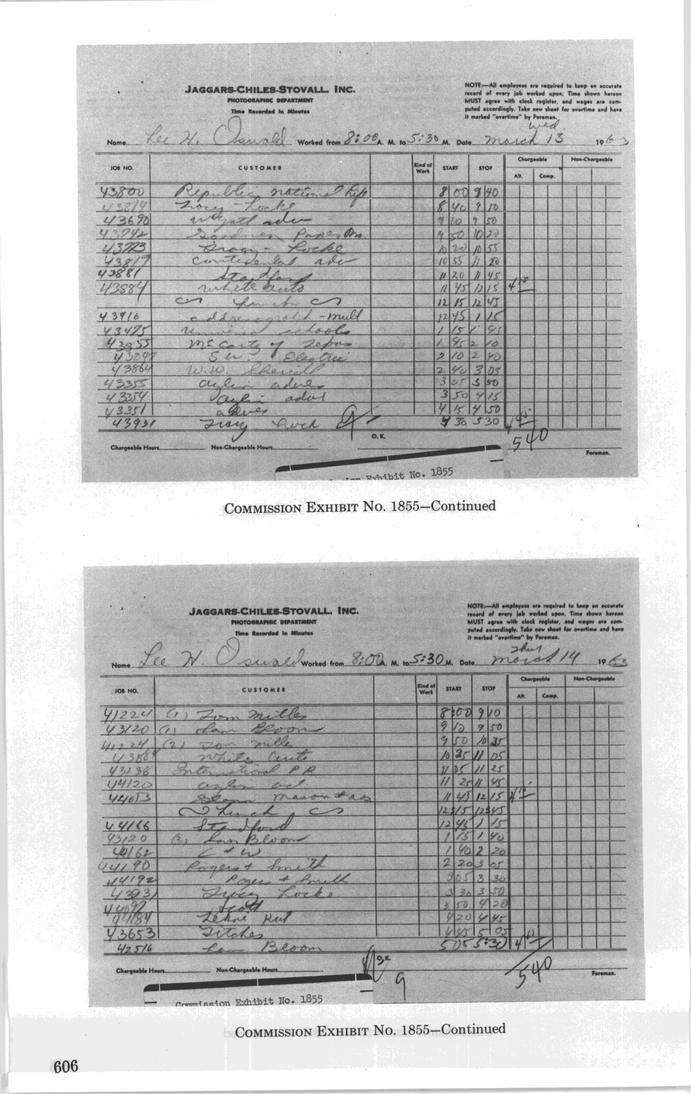 JAGGARS-CHILES-STOVALL, INC.
PHOTOGRAPHIC DEPARTMENT
Time Recorded in Minutes
NOTE:—All employees are required to keep an accurate
record of every job worked upon. Time shown hereon
MUST agree with clock register, and wages are com-
puted accordingly. Take new sheet for overtime and have
it marked "overtime" by Foreman.
Wed
Name Lee H. Oswald Worked from 8:00 A. M. to 5:30 M. Date March 13 1963
JOB NO. CUSTOMER Kind of Work START STOP Chargeable Non-Chargeable
Alt. Comp.
43800 Republic National 8 00 8 40
43814 Tracy-Locke 8 40 9 10
43690 adv 9 10 9 50
9 50 10 20
Tracy-Locke 10 20 10 55
43819 Continental adv 10 55 11 20
43881 Standford 11 20 11 45
43884 White auto 11 45 12 15 4 15
Lunch 12 15 12 45
43916 addressograph-mult 12 45 1 15
43475 Universal schools 1 15 1 45
McCarty of Texas 1 45 2 10
S.W. Electric 2 10 2 40
43864 W.W. Sherrill 2 40 3 05
43355 aylin advs 3 05 3 50
43354 aylin advs 3 50 4 15
43351 advs 4 15 4 50
43931 Tracy Lock 4 30 5 30 4 45
O.K. 540
Chargeable Hours Non-Chargeable Hours Foreman.
Exhibit No. 1855
COMMISSION EXHIBIT NO. 1855—Continued
JAGGARS-CHILES-STOVALL, INC.
PHOTOGRAPHIC DEPARTMENT
Time Recorded in Minutes
NOTE:—All employees are required to keep an accurate
record of every job worked upon. Time shown hereon
MUST agree with clock register, and wages are com-
puted accordingly. Take new sheet for overtime and have
it marked "overtime" by Foreman.
Thur
Name Lee H. Oswald Worked from 8:00 A. M. to 5:30 M. Date March 14 1963
JOB NO. CUSTOMER Kind of Work START STOP Chargeable Non-Chargeable
Alt. Comp.
41224 (1) Tom Mills 8:00 9 10
43120 (1) Sam Bloom 9 10 9 50
41224 (2) Tom Mills 9 50 10 35
White auto 10 35 11 05
43138 International P R 11 05 11 25
44120 11 25 11 45
44053 11 45 12 15 4 15
Lunch 12 15 12 45
44166 Standford 12 45 1 15
43120 (2) Sam Bloom 1 15 1 40
44162 C & W 1 40 2 20
44190 Rogers & Smith 2 20 3 05
44192 Rogers & Smith 3 05 3 30
43931 Tracy Locke 3 30 3 50
Scott 3 50 4 20
44184 4 20 4 45
43653 Titches 4 45 5 05
42516 Sam Bloom 5 05 5:30 4 45
O.K. 540
9
Chargeable Hours Non-Chargeable Hours Foreman.
Commission Exhibit No. 1855
COMMISSION EXHIBIT NO. 1855—Continued
606